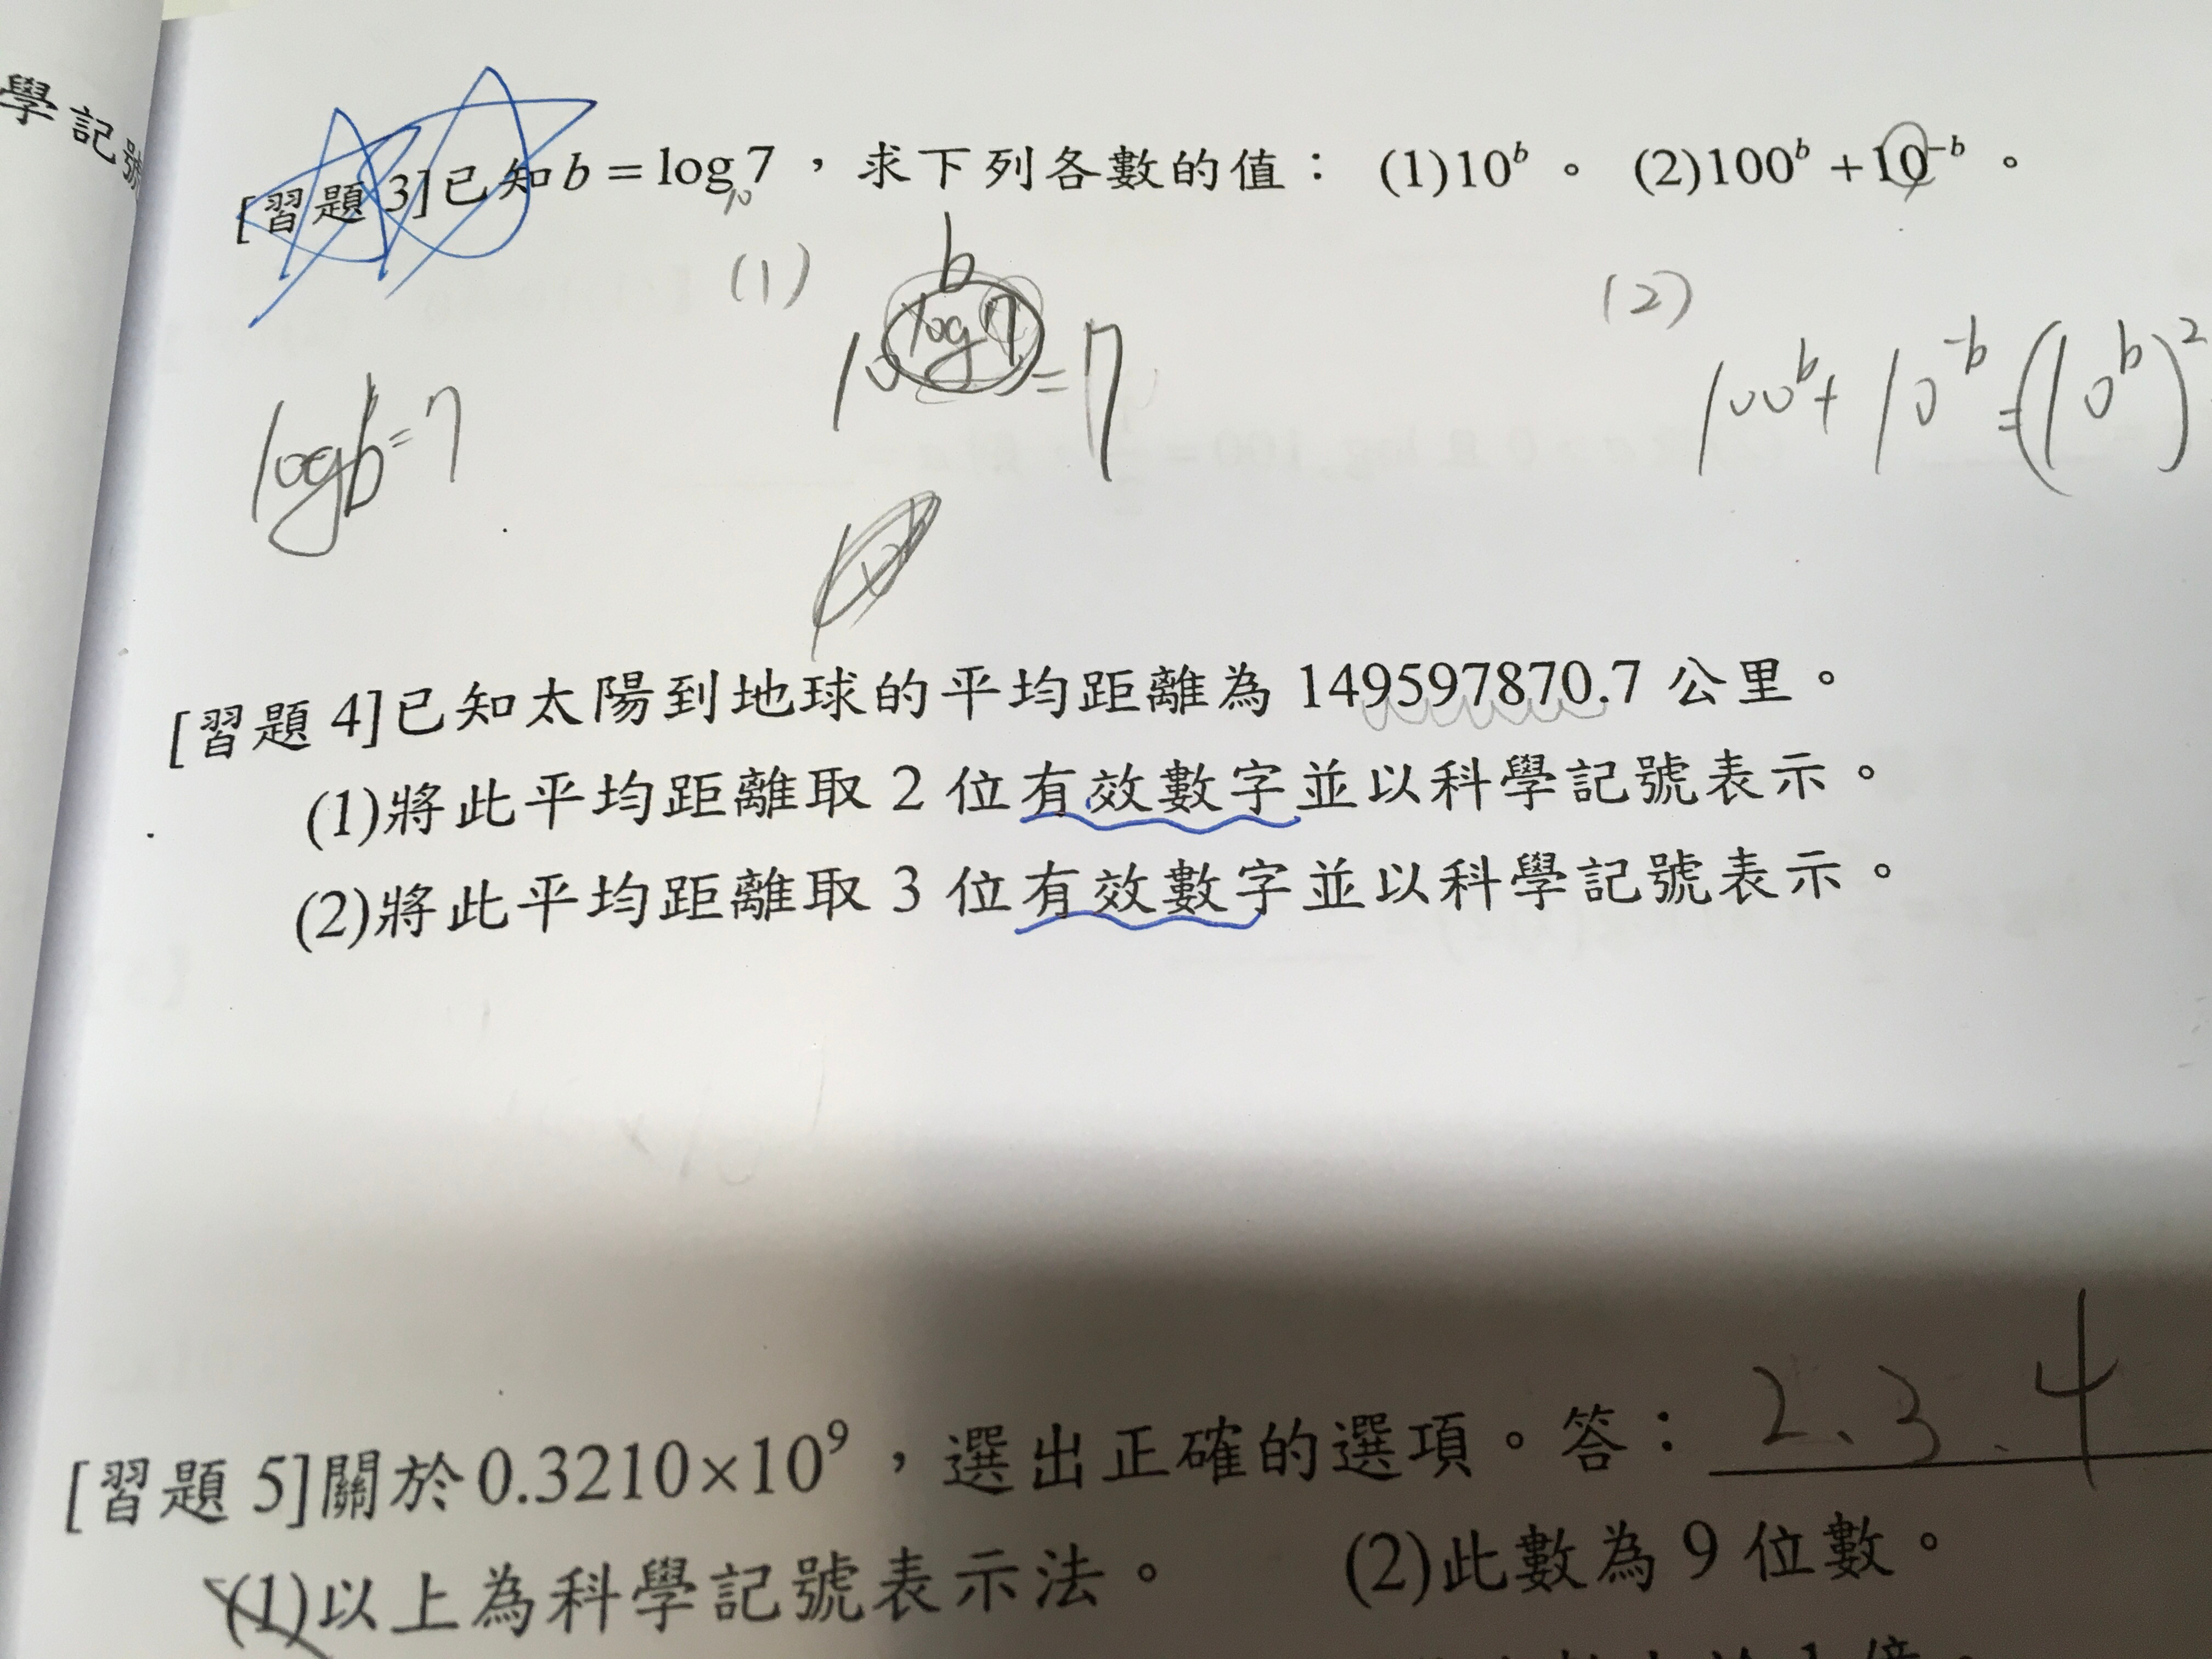 學記號
[習題 3]已知 b = log 7，求下列各數的值： (1)10ᵇ 。 (2)100ᵇ + 10⁻ᵇ 。
10
(1)
b
10 log 7 = 7
(2)
100ᵇ + 10⁻ᵇ = (10ᵇ)²
log b = 7
[習題 4]已知太陽到地球的平均距離為 149597870.7 公里。
(1)將此平均距離取 2 位有效數字並以科學記號表示。
(2)將此平均距離取 3 位有效數字並以科學記號表示。
[習題 5]關於 0.3210×10⁹，選出正確的選項。答： 2、3、4
(1)以上為科學記號表示法。 (2)此數為 9 位數。